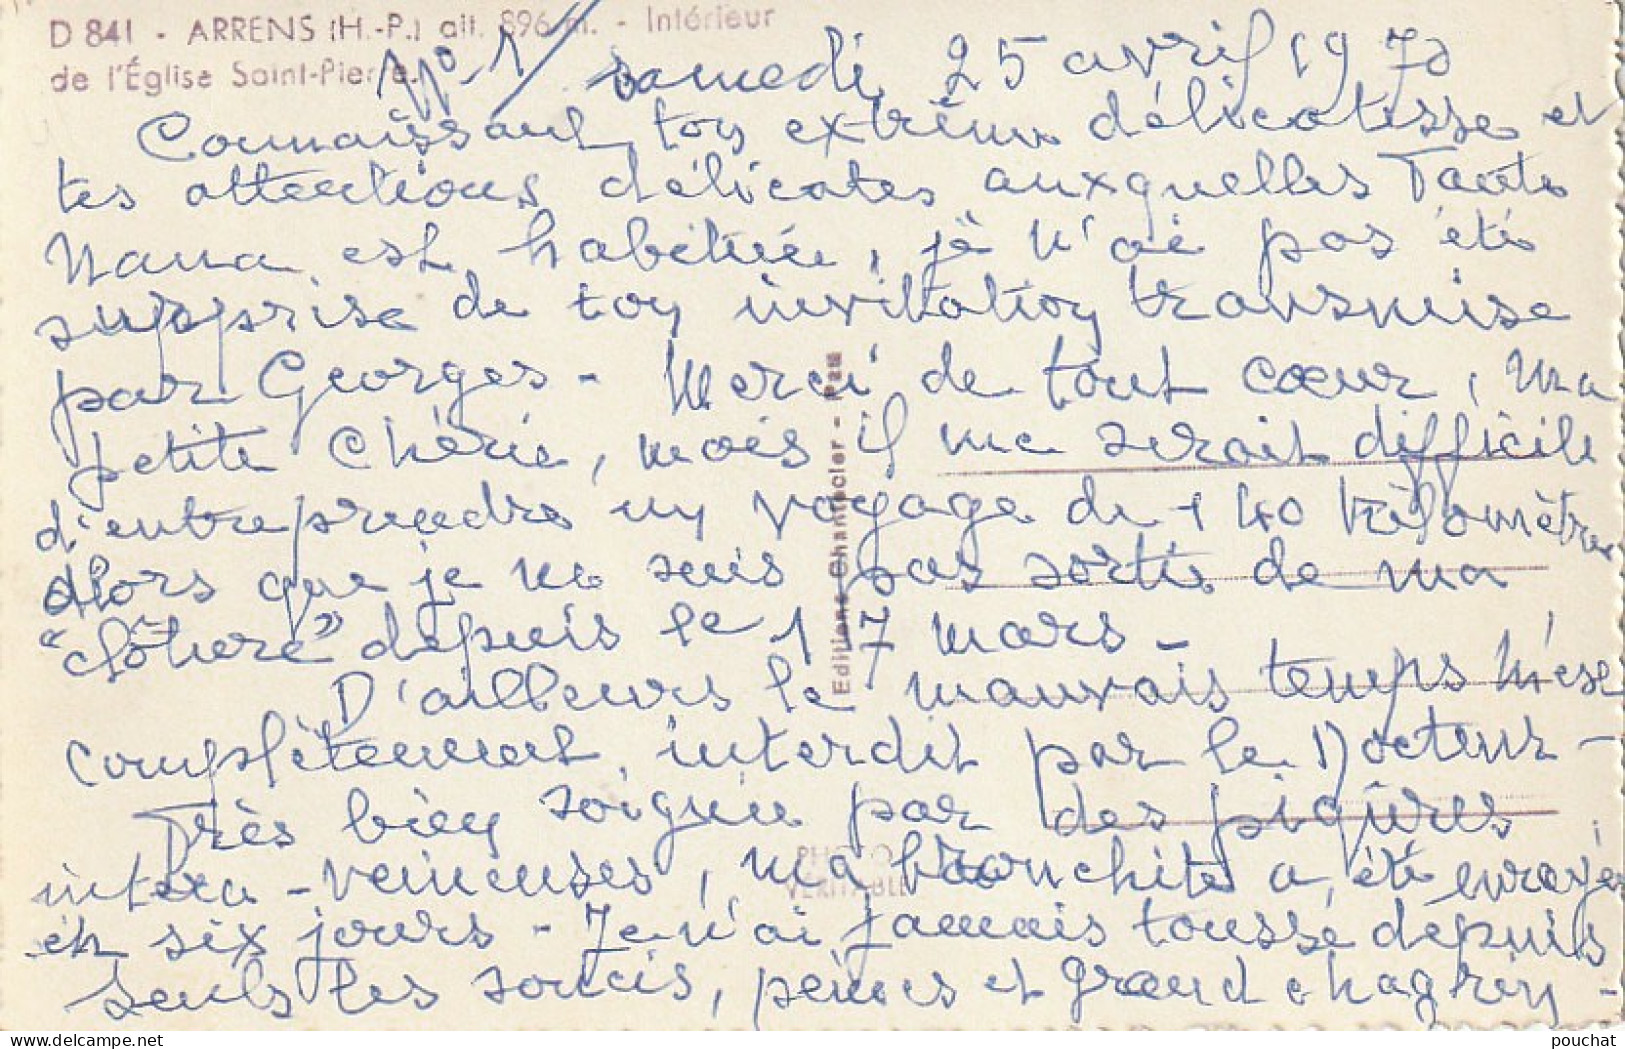 D 841 - ARRENS (H.-P.) alt. 896 m. - Intérieur
de l'Église Saint-Pierre.
N° 1/ samedi 25 avril 1970
Connaissant ton extrême délicatesse et
tes attentions délicates auxquelles Tante
Nana est habituée, je n'ai pas été
surprise de ton invitation transmise
par Georges - Merci de tout cœur, Ma
petite Chérie, mais il me serait difficile
d'entreprendre un voyage de 140 kilomètres
alors que je ne suis pas sortie de ma
"clôture" depuis le 17 mars -
D'ailleurs le mauvais temps m'est
complètement interdit par le Docteur -
Très bien soignée par des piqûres
intra-veineuses, ma bronchite a été enrayée
en six jours - Je n'ai jamais toussé depuis
Seuls les soucis, peines et grand chagrin -
Editions Chantecler - Pau
PHOTO
VÉRITABLE
www.delcampe.net
pouchat